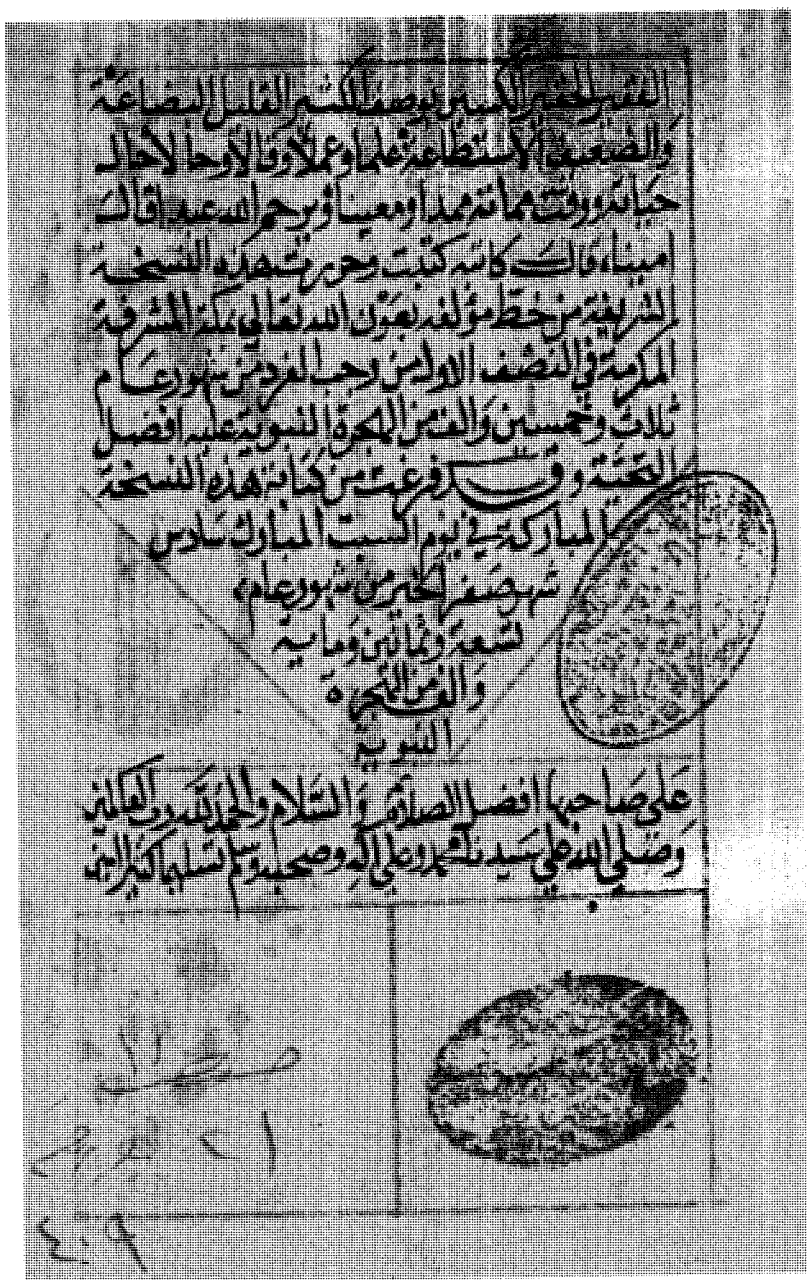 الفقير الحقير الكسير بوصف الكثير القليل البضاعة
والضعيف الاستطاعة علما وعملا وقالا وحالا لاحال
حياته ووقت مماته ممدا ومعينا ويرحم الله عبدا قال
امينا، قال كاتبه كتبت وحررت هذه النسخة
الشريفة من خط مؤلفه بعون الله تعالي بمكة المشرفة
المكرمة في النصف الاول من رجب الفرد من شهور عام
ثلاث وخمسين والف من الهجرة النبوية عليه افضل
التحية وقد فرغت من كتابة هذه النسخة
المباركة في يوم السبت المبارك سادس
شهر صفر الخير من شهور عام
تسعة وثمانين وماية
والف من الهجرة
النبوية
علي صاحبها افضل الصلاة والسلام والحمد لله رب العالمين
وصلي الله علي سيدنا محمد وعلي اله وصحبه وسلم تسليما كثيرا امين
٤٠٩